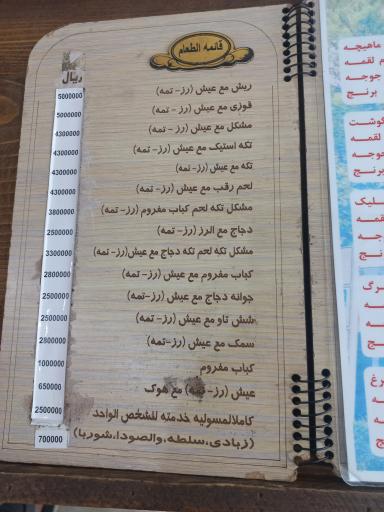 قائمه الطعام
ریال
ریش مع عیش (رز- تمه) 5000000
قوزی مع عیش (رز - تمه) 5000000
مشکل مع عیش (رز- تمه) 4300000
تکه استیک مع عیش (رز- تمه) 4300000
تکه مع عیش (رز- تمه) 4300000
لحم رقب مع عیش (رز- تمه) 4300000
مشکل تکه لحم کباب مفروم (رز- تمه) 3800000
دجاج مع الرز (رز- تمه) 2500000
مشکل تکه لحم تکه دجاج مع عیش(رز-تمه) 3300000
کباب مفروم مع عیش (رز-تمه) 2800000
جوانه دجاج مع عیش (رز-تمه) 2500000
شش تاو مع عیش (رز- تمه) 2500000
سمک مع عیش (رز-تمه) 2800000
کباب مفروم 1000000
عیش (رز-تمه) مع هوک 650000
کاملالمسولیه خدمته للشخص الواحد 2500000
(زبادی،سلطه،والصودا،شوربا) 700000
ماهیچه
لقمه
جوجه
برنج
گوشت
لقمه
برنج